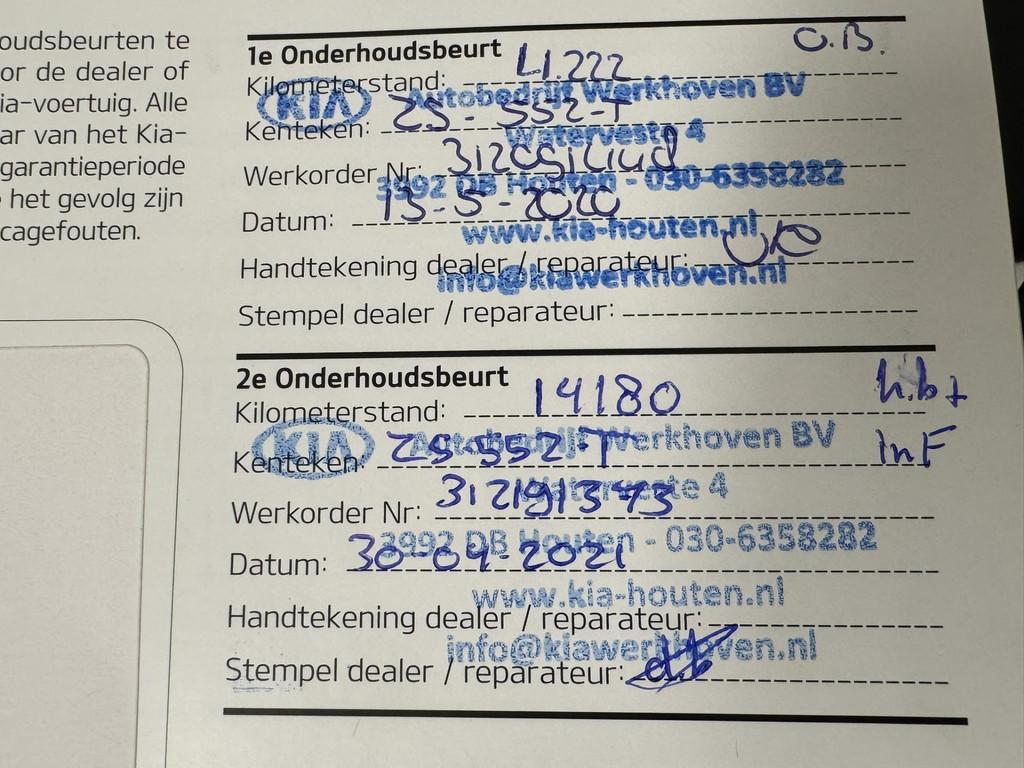 oudsbeurten te
or de dealer of
ia-voertuig. Alle
ar van het Kia-
garantieperiode
het gevolg zijn
cagefouten.
1e Onderhoudsbeurt O.B.
Kilometerstand: 41.222
KIA Autobedrijf Werkhoven BV
Kenteken: ZS-552-T
Waterveste 4
Werkorder Nr:
3992 DB Houten - 030-6358282
Datum: 13-5-2020
www.kia-houten.nl
Handtekening dealer / reparateur:
info@kiawerkhoven.nl
Stempel dealer / reparateur:
2e Onderhoudsbeurt
Kilometerstand: 14180 h.b+
KIA Autobedrijf Werkhoven BV
Kenteken: ZS-552-T inF
Waterveste 4
Werkorder Nr: 312191373
3992 DB Houten - 030-6358282
Datum: 30-04-2021
www.kia-houten.nl
Handtekening dealer / reparateur:
info@kiawerkhoven.nl
Stempel dealer / reparateur: